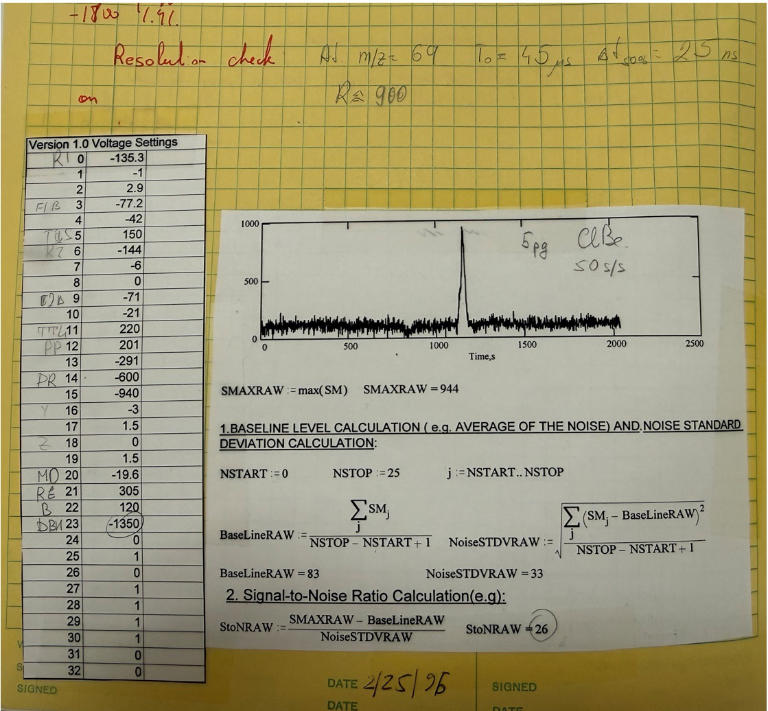 -1800
Resolution check At m/z= 69 T₀ = 45 μs Δt 50% = 25 ns
on R≅ 900
Version 1.0 Voltage Settings
0 -135.3
1 -1
2 2.9
F/B 3 -77.2
4 -42
5 150
6 -144
7 -6
8 0
9 -71
10 -21
11 220
PP 12 201
13 -291
DR 14 -600
15 -940
Y 16 -3
17 1.5
Z 18 0
19 1.5
MD 20 -19.6
RE 21 305
B 22 120
23 -1350
24 0
25 1
26 0
27 1
28 1
29 1
30 1
31 0
32 0
1000
500
0
0 500 1000 1500 2000 2500
Time,s
5pg ClBe.
50 s/s
SMAXRAW := max(SM) SMAXRAW = 944
1.BASELINE LEVEL CALCULATION ( e.g. AVERAGE OF THE NOISE) AND NOISE STANDARD
DEVIATION CALCULATION:
NSTART := 0 NSTOP := 25 j := NSTART.. NSTOP
BaseLineRAW := ∑ j SMj / NSTOP − NSTART + 1 NoiseSTDVRAW := √ ∑ j (SMj − BaseLineRAW)² / NSTOP − NSTART + 1
BaseLineRAW = 83 NoiseSTDVRAW = 33
2. Signal-to-Noise Ratio Calculation(e.g):
StoNRAW := SMAXRAW − BaseLineRAW / NoiseSTDVRAW StoNRAW = 26
SIGNED DATE 2/25/96 SIGNED
DATE DATE